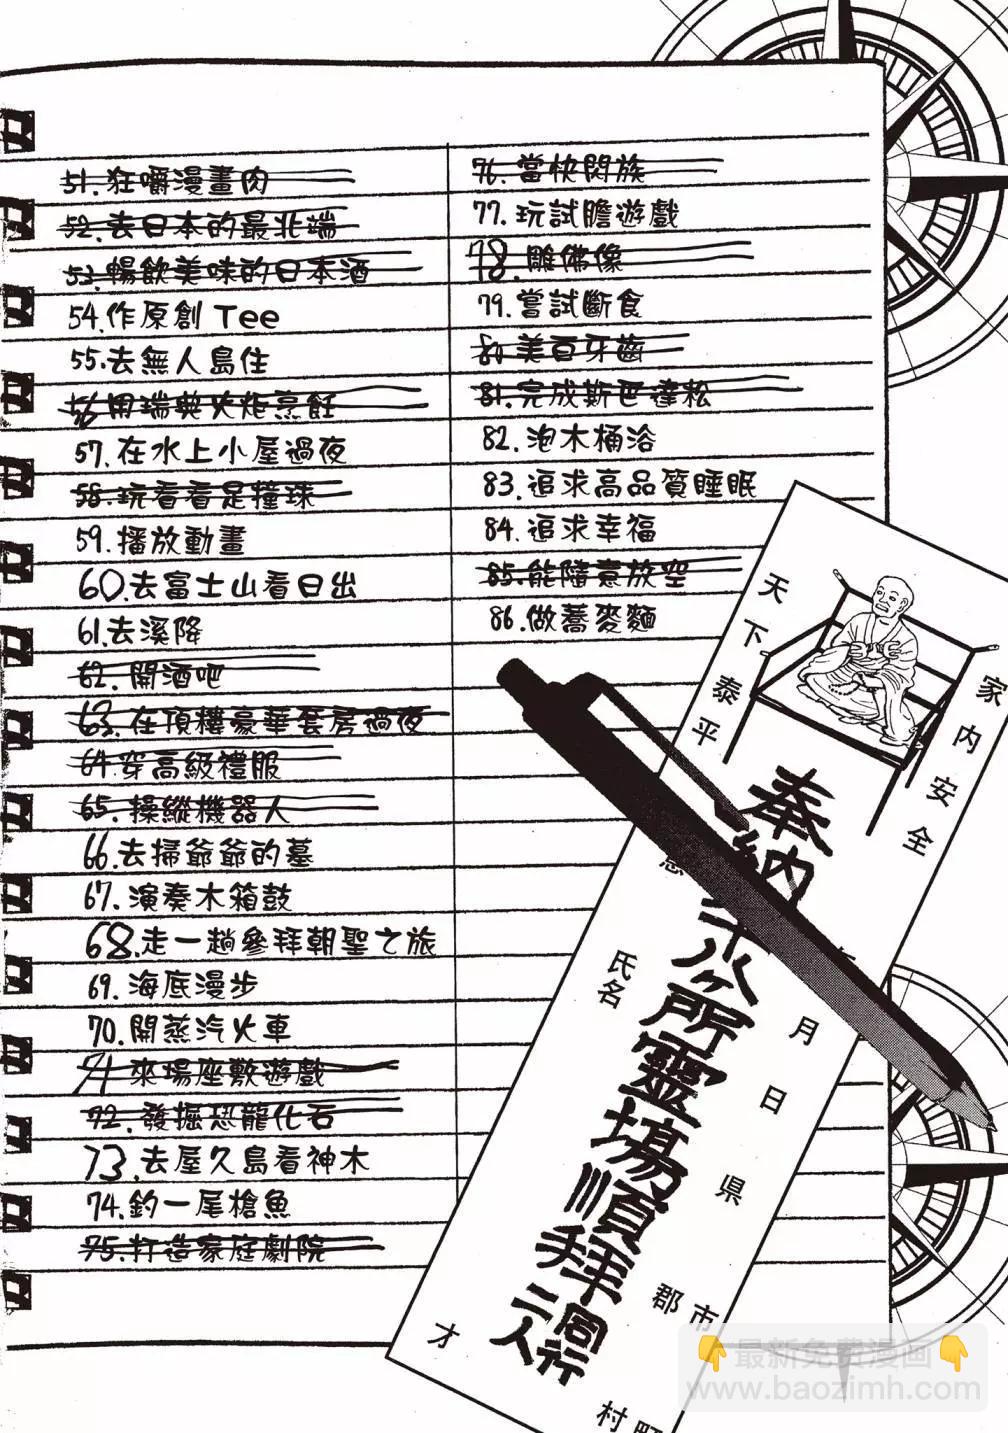 51.狂嚼漫畫肉
52.去日本的最北端
53.暢飲美味的日本酒
54.作原創Tee
55.去無人島住
56用瑞典火炬烹飪
57.在水上小屋過夜
58.玩看看足撞球
59.播放動畫
60.去富士山看日出
61.去溪降
62.開酒吧
63.在頂樓豪華套房過夜
64.穿高級禮服
65.操縱機器人
66.去掃爺爺的墓
67.演奏木箱鼓
68.走一趟參拜朝聖之旅
69.海底漫步
70.開蒸汽火車
71來場座敷遊戲
72.發掘恐龍化石
73.去屋久島看神木
74.釣一尾槍魚
75.打造家庭劇院
76.當快閃族
77.玩試膽遊戲
78.雕佛像
79.嘗試斷食
80美百牙齒
81.完成斯巴達松
82.泡木桶浴
83.追求高品質睡眠
84.追求幸福
85.能隨意放空
86.做蕎麥麵
天下泰平
家内安全
奉納
所靈場順拜
同行二人
月
日
県
郡
市
村
氏名
才
最新免费漫画
www.baozimh.com